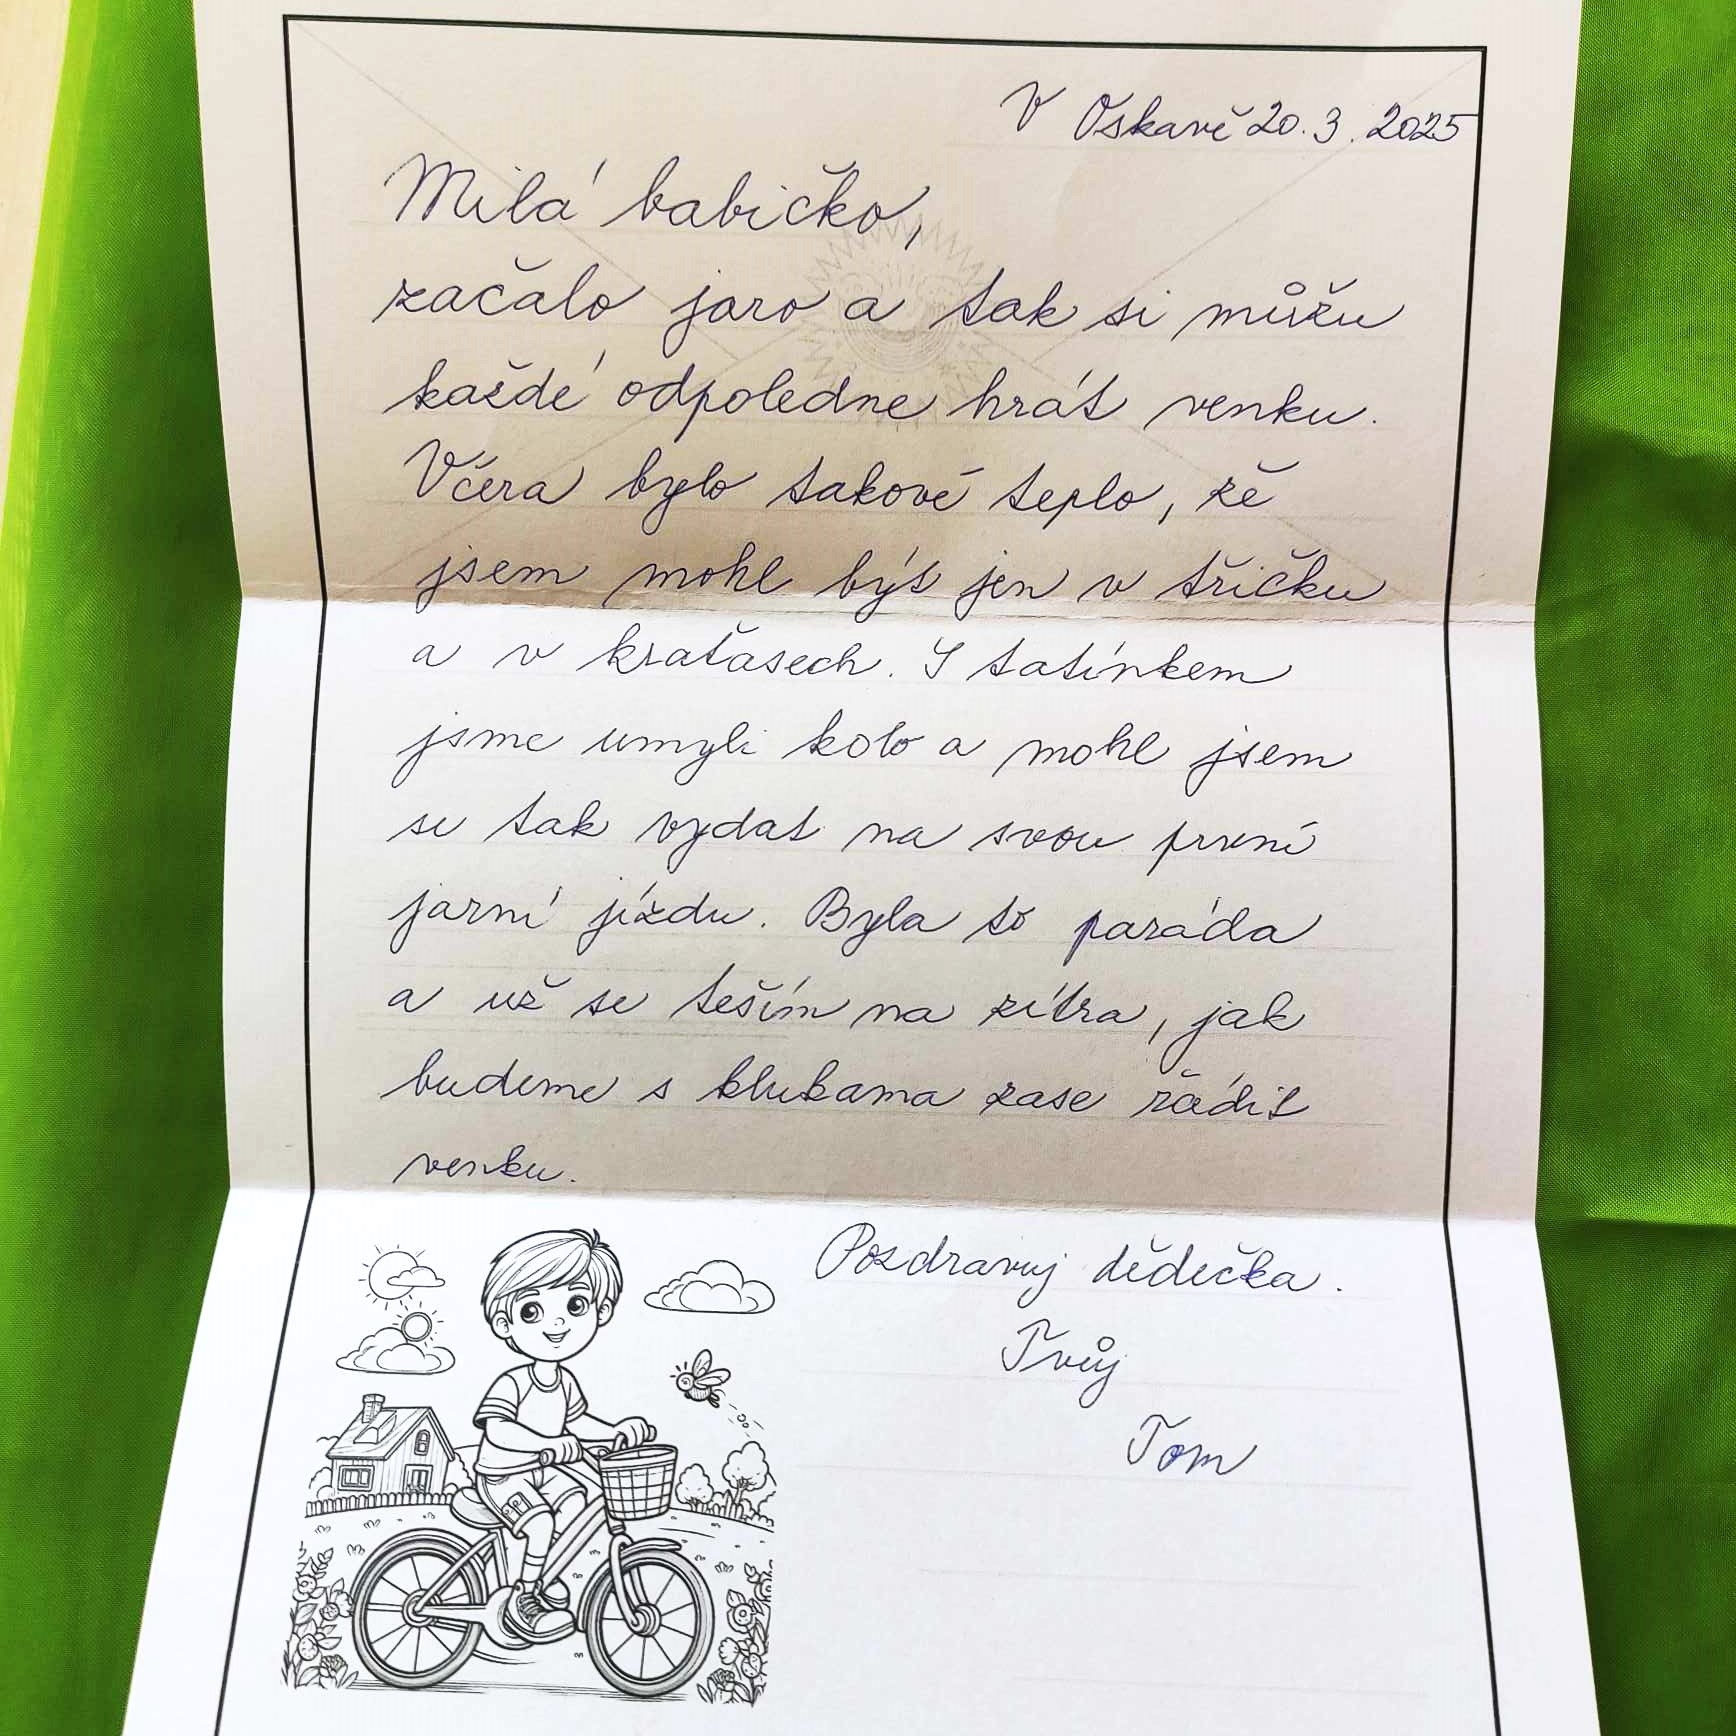 V Oskavě 20. 3. 2025
Milá babičko,
začalo jaro a tak si můžu
každé odpoledne hrát venku.
Včera bylo takové teplo, že
jsem mohl být jen v tričku
a v kraťasech. S tatínkem
jsme umyli kolo a mohl jsem
se tak vydat na svou první
jarní jízdu. Byla to paráda
a už se těším na zítra, jak
budeme s klukama zase řádit
venku.
Pozdravuj dědečka.
Tvůj
Tom